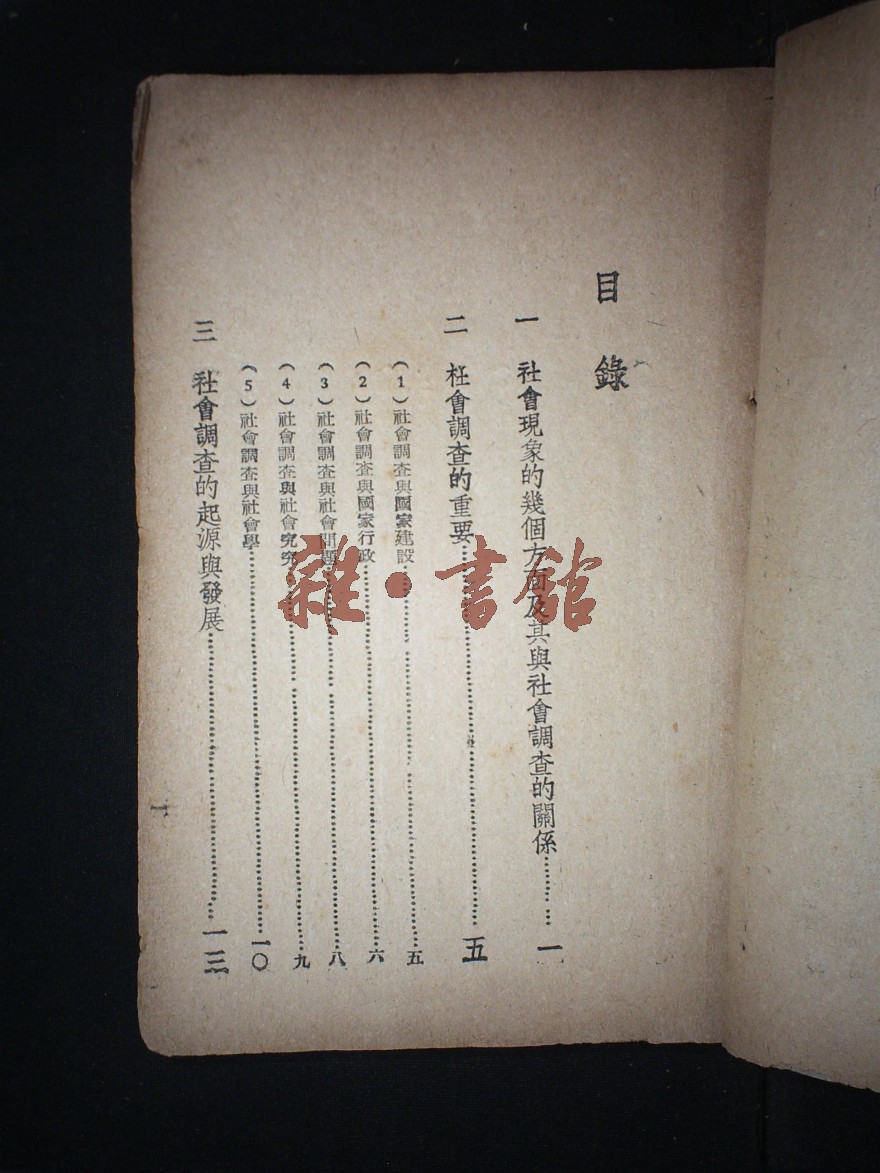 目錄
一 社會現象的幾個方面及其與社會調查的關係…………一
二 社會調查的重要…………五
(1)社會調查與國家建設…………五
(2)社會調查與國家行政…………六
(3)社會調查與社會問題…………八
(4)社會調查與社會究究…………九
(5)社會調查與社會學…………一〇
三 社會調查的起源與發展…………一三
一
雜·書館